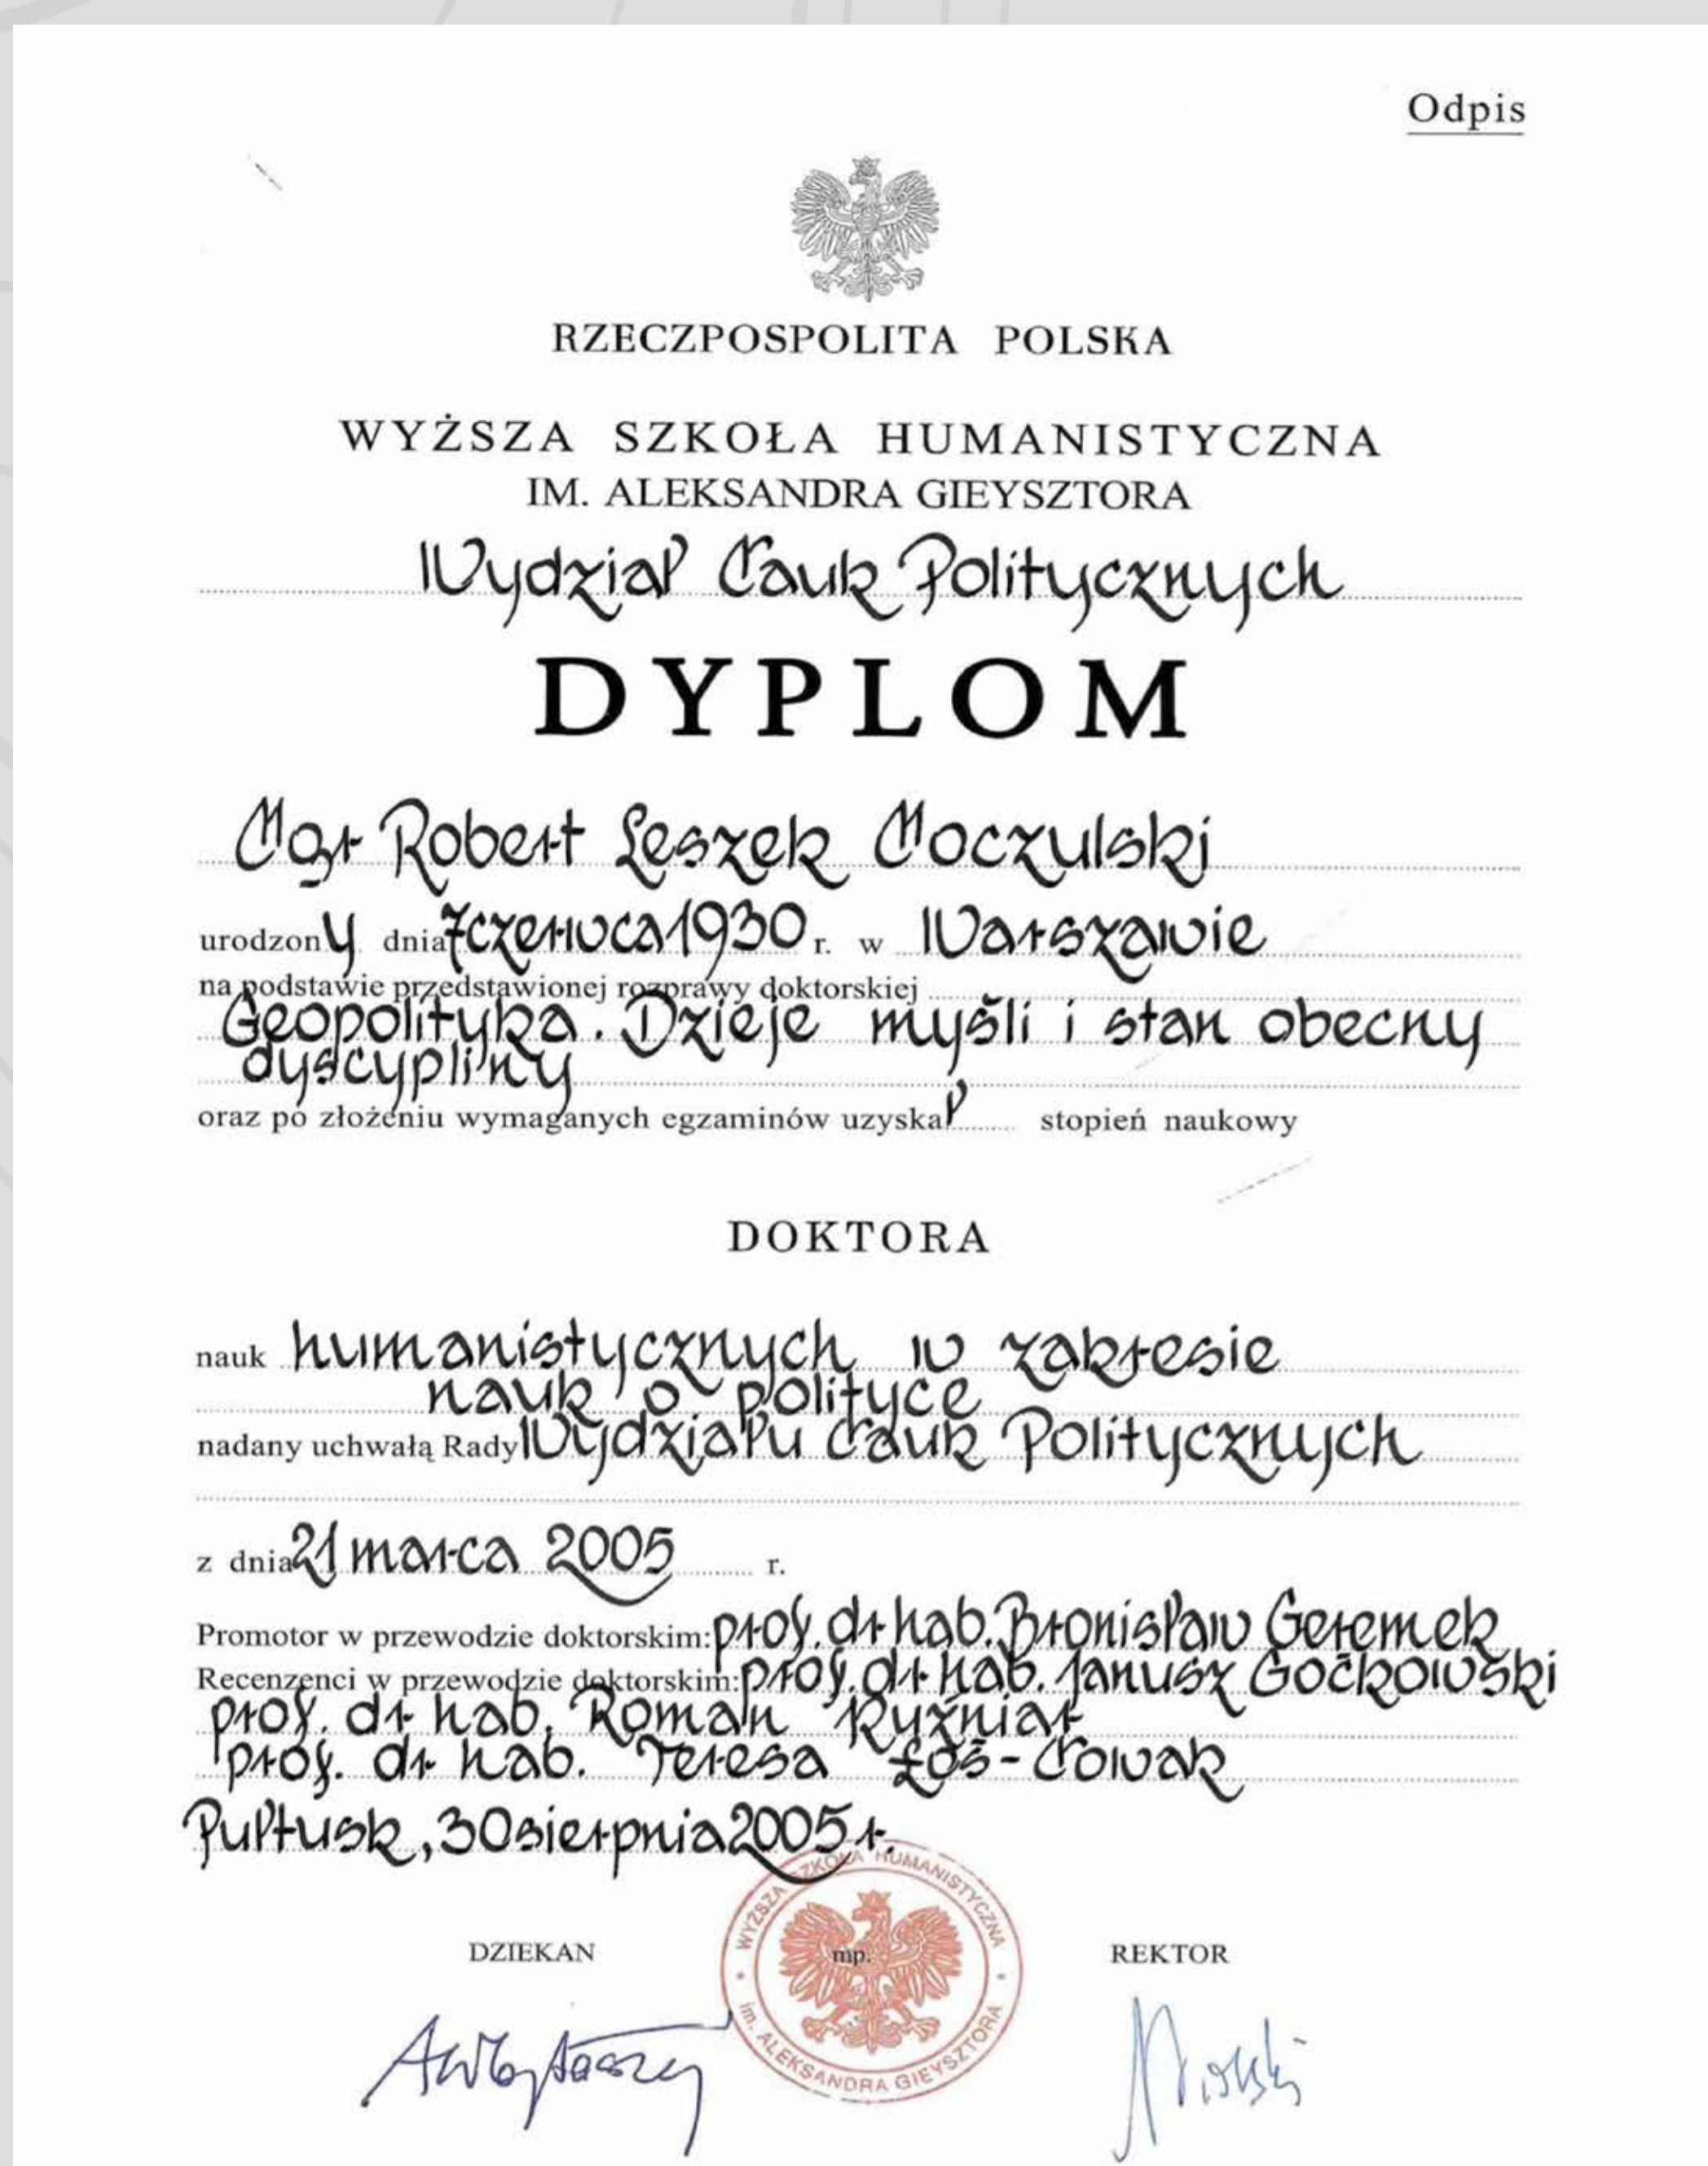 Odpis
RZECZPOSPOLITA POLSKA
WYŻSZA SZKOŁA HUMANISTYCZNA
IM. ALEKSANDRA GIEYSZTORA
Wydział Nauk Politycznych
DYPLOM
Mgr Robert Leszek Moczulski
urodzony dnia 7 czerwca 1930 r. w Warszawie
na podstawie przedstawionej rozprawy doktorskiej
Geopolityka. Dzieje myśli i stan obecny
dyscypliny
oraz po złożeniu wymaganych egzaminów uzyskał stopień naukowy
DOKTORA
nauk humanistycznych w zakresie
nauk o polityce
nadany uchwałą Rady Wydziału Nauk Politycznych
z dnia 21 marca 2005 r.
Promotor w przewodzie doktorskim: prof. dr hab. Bronisław Geremek
Recenzenci w przewodzie doktorskim: prof. dr hab. Janusz Goćkowski
prof. dr hab. Roman Kuźniar
prof. dr hab. Teresa Łoś-Nowak
Pułtusk, 30 sierpnia 2005 r.
WYŻSZA SZKOŁA HUMANISTYCZNA
im. ALEKSANDRA GIEYSZTORA
DZIEKAN mp. REKTOR